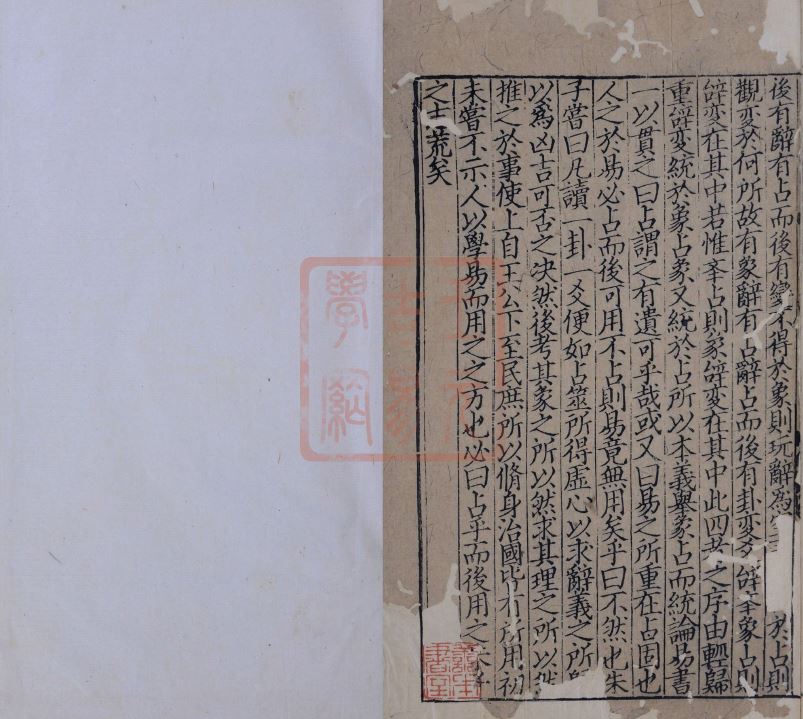 後有辭有占而後有變不得於象則玩辭為於占則
觀變於何所故有象辭有占辭占而後有卦变爻辝举象占則
辝变在其中若惟举占則象辝变在其中此四者之序由輕歸
重辝变統於象占象又統於占所以本義舉象占而統論易書
一以貫之曰占謂之有遺可乎哉或又曰易之所重在占固也
人之於易必占而後可用不占則易竟無用矣乎曰不然也朱
子嘗曰凡讀一卦一爻便如占筮所得虛心以求辭義之所
以爲凶吉可否之决然後考其象之所以然求其理之所以然
推之於事使上自王公下至民庶所以脩身治國皆有所用初
未嘗不示人以學易而用之之方也必曰占乎而後用之
之言荒矣